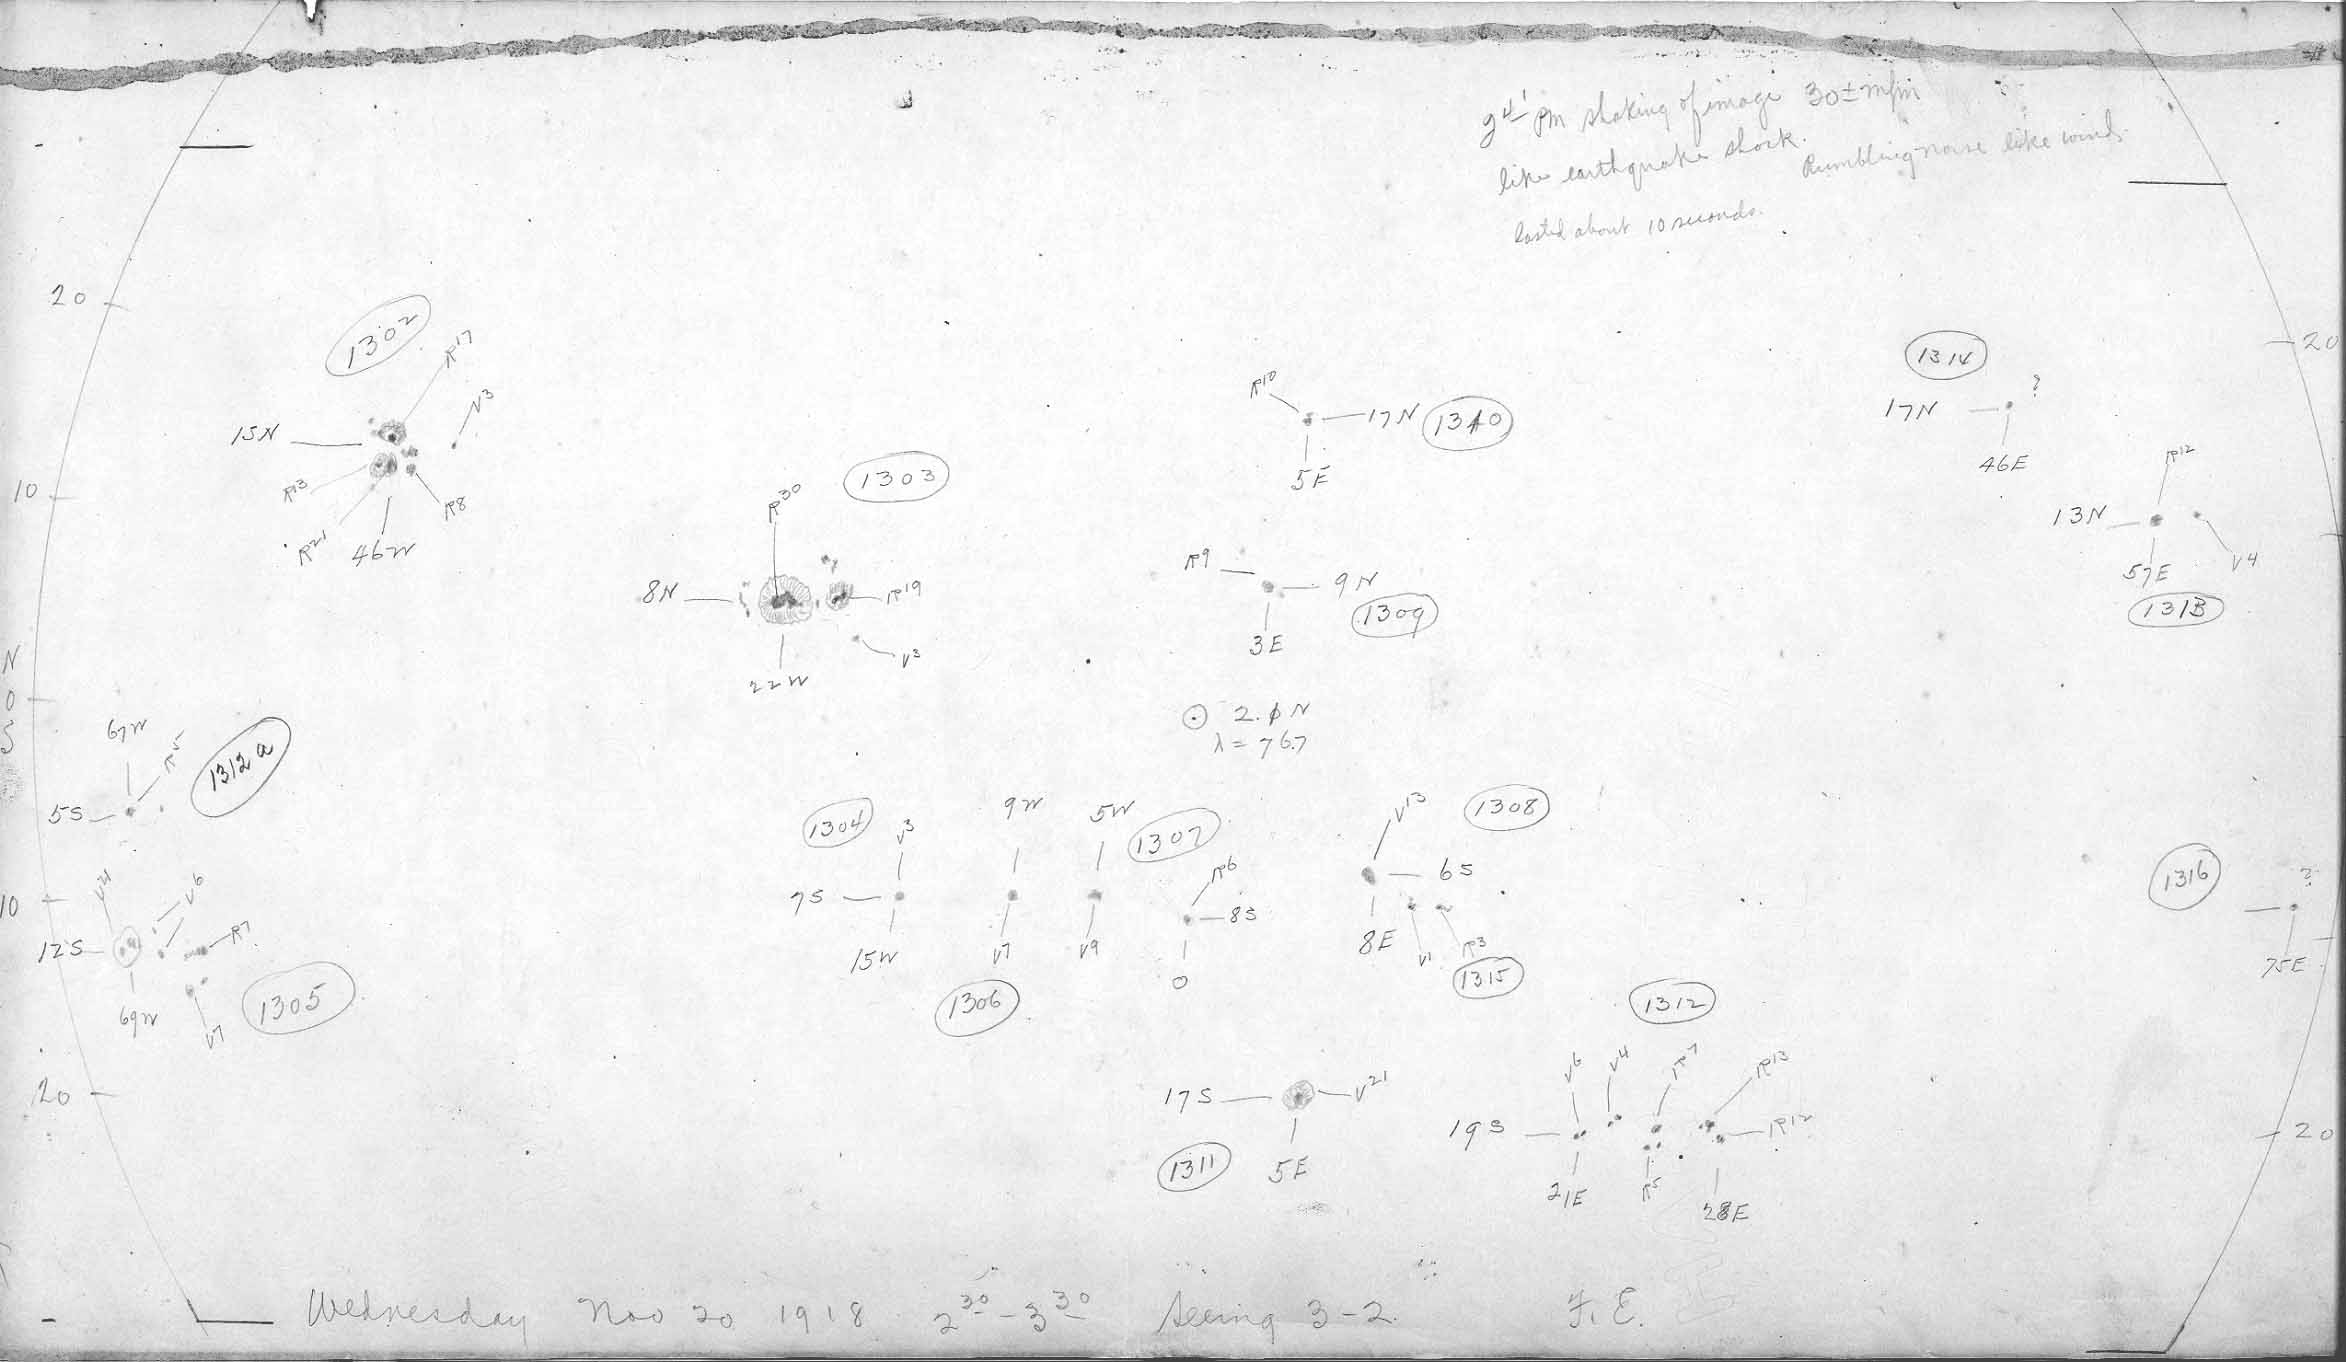 pm shaking of image 30± m/m
like earthquake shock. Rumbling noise like wind.
lasted about 10 seconds.
20
20
1302
R17
V3
15N
R13
R21
46W
R8
10
1303
R30
8N
R19
22W
V3
R10
17N
1310
5E
R9
9N
1309
3E
1314
17N
?
46E
R12
13N
57E
V4
1313
N
0
S
⊙ 2.0 N
λ = 76.7
67W
R5
1312a
5S
1304
V3
7S
15W
9W
V7
1306
5W
1307
V9
R6
8S
0
V13
1308
6S
8E
V1
R3
1315
10
V21
V6
12S
R7
69W
V7
1305
1316
?
75E
20
17S
V21
1311
5E
1312
V6
V4
R7
R13
19S
R12
21E
R5
28E
20
Wednesday Nov 20 1918 2 30 - 3 30 Seeing 3-2. F. E.